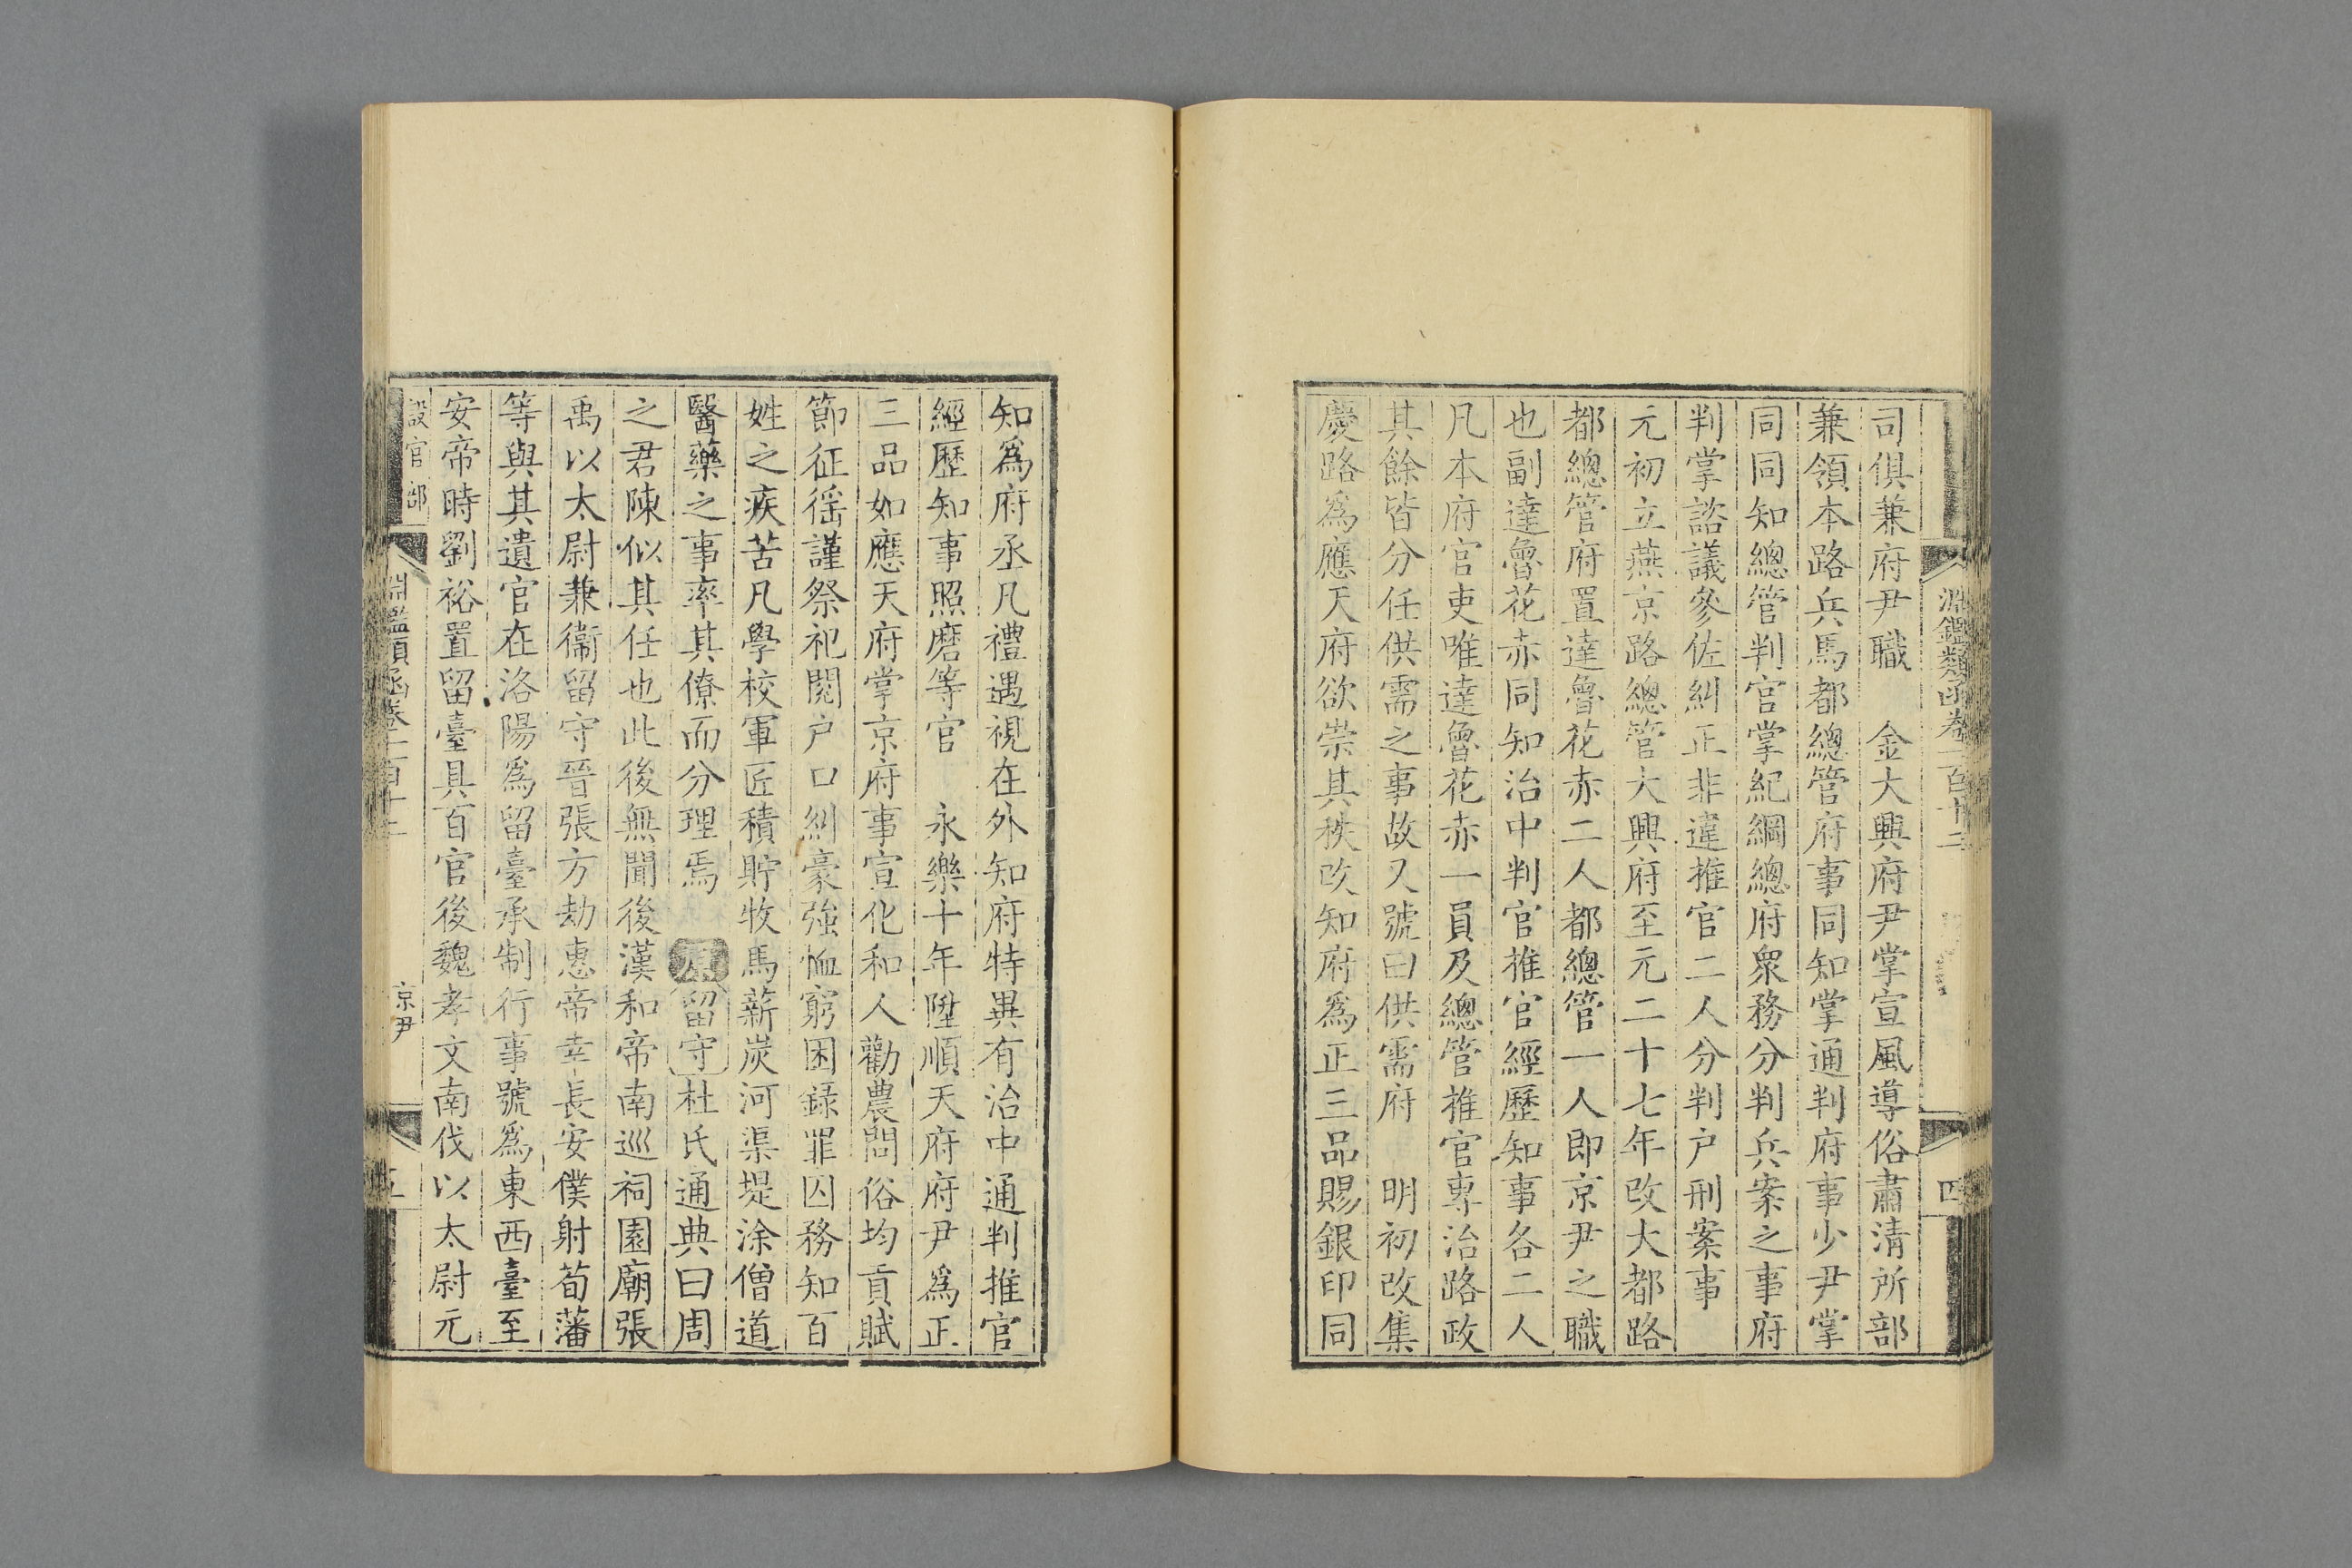 淵鑑類函卷一百十二
四
司俱兼府尹職　金大興府尹掌宣風導俗肅清所部
兼領本路兵馬都總管府事同知掌通判府事少尹掌
同同知總管判官掌紀綱總府眾務分判兵案之事府
判掌諮議參佐糾正非違推官二人分判户刑案事
元初立燕京路總管大興府至元二十七年改大都路
都總管府置達魯花赤二人都總管一人即京尹之職
也副達魯花赤同知治中判官推官經歷知事各二人
凡本府官吏唯達魯花赤一員及總管推官專治路政
其餘皆分任供需之事故又號曰供需府　明初改集
慶路為應天府欲崇其秩改知府為正三品賜銀印同
知為府丞凡禮遇視在外知府特異有治中通判推官
經歷知事照磨等官　永樂十年陞順天府府尹為正
三品如應天府掌京府事宣化和人勸農問俗均貢賦
節征徭謹祭祀閱户口糾豪強恤窮困録罪囚務知百
姓之疾苦凡學校軍匠積貯牧馬薪炭河渠堤涂僧道
醫藥之事率其僚而分理焉　原留守杜氏通典曰周
之君陳似其任也此後無聞後漢和帝南巡祠園廟張
禹以太尉兼衞留守晉張方劫惠帝幸長安僕射荀藩
等與其遺官在洛陽為留臺承制行事號為東西臺至
安帝時劉裕置留臺具百官後魏孝文南伐以太尉元
設官部
淵鑑類函卷一百十二
京尹
五